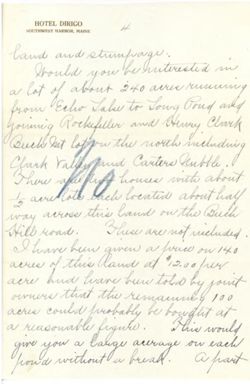 HOTEL DIRIGO
SOUTHWEST HARBOR, MAINE
4
land and stumpage.
Would you be interested in
a lot of about 240 acres running
from Echo Lake to Long Pond and
joining Rockefeller and Henry Clark
Beech Hill lot on the north including
Clark Valley and Carters Nubble.
There are two houses with about
½ acre lots each located about half
way across this land on the Beech
Hill road. These are not included.
I have been given a price on 140
acres of this land at $200 per
acre and have been told by joint
owners that the remaining 100
acres could probably be bought at
a reasonable figure. This would
give you a large acreage on each
pond without a break. A part
No